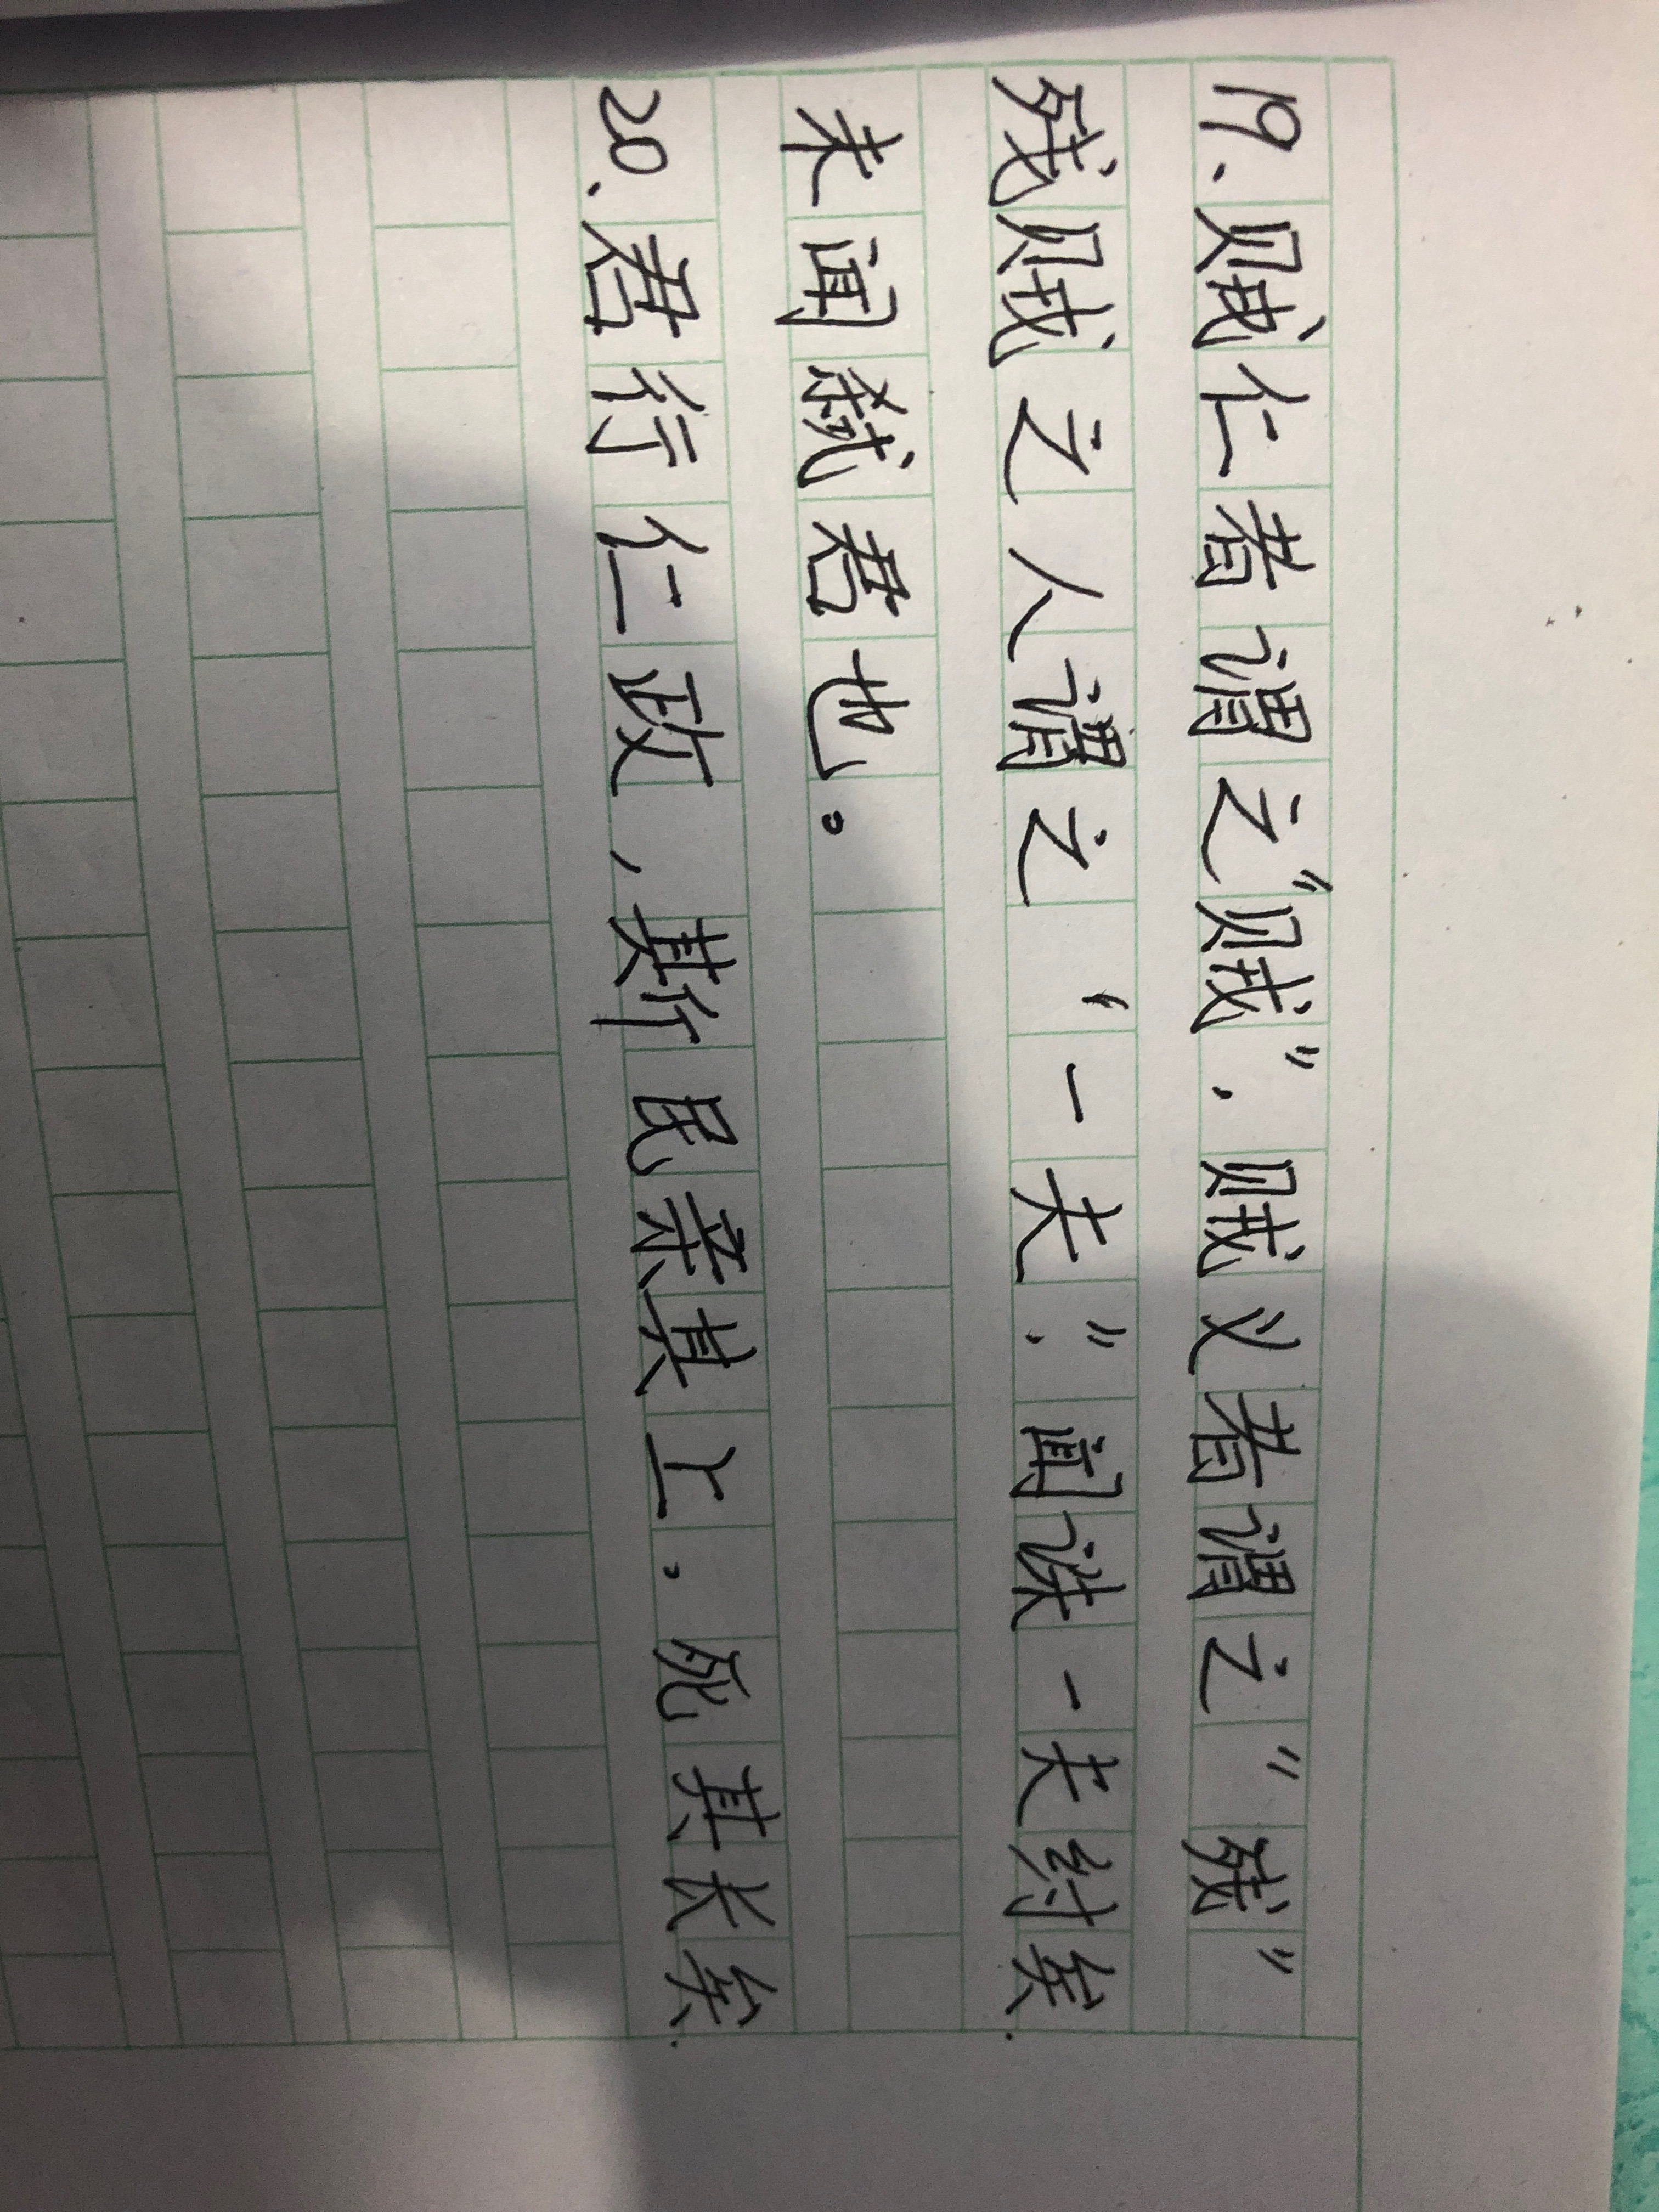 19、贼仁者谓之“贼”，贼义者谓之“残”
残贼之人谓之“一夫”，闻诛一夫纣矣.
未闻弑君也。
20、君行仁政，斯民亲其上，死其长矣.